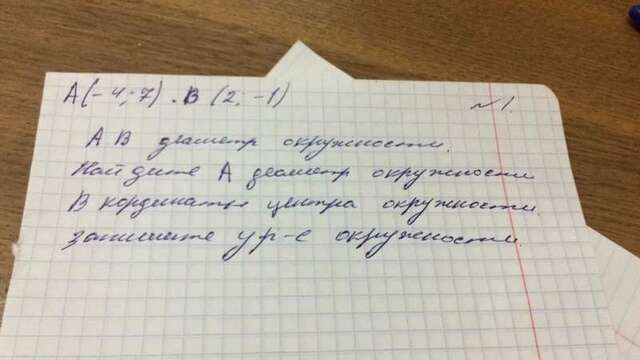 А(-4; 7) . В (2; -1) №1.
АВ диаметр окружности.
Найдите А деаметр окружности
В кординаты центра окружности.
запишите ур-е окружности.